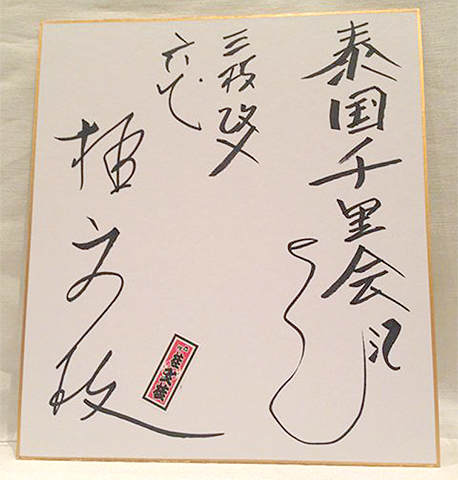 泰国千里会江
三枝改メ
六代
桂文枝
桂文枝